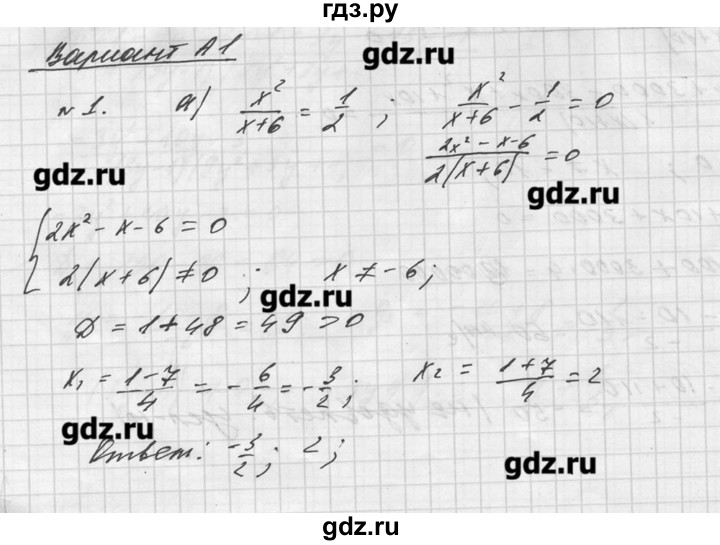 гдз.ру
Вариант А1
gdz.ru
№1. а) x²/(x+6) = 1/2 ; x²/(x+6) - 1/2 = 0
(2x² - x - 6)/(2(x+6)) = 0
gdz.ru
gdz.ru
{ 2x² - x - 6 = 0
2(x+6) ≠ 0 ; x ≠ -6;
gdz.ru
Д = 1 + 48 = 49 > 0
x₁ = (1-7)/4 = -6/4 = -3/2 ; x₂ = (1+7)/4 = 2
gdz.ru
Ответ: -3/2 ; 2;
gdz.ru
gdz.ru